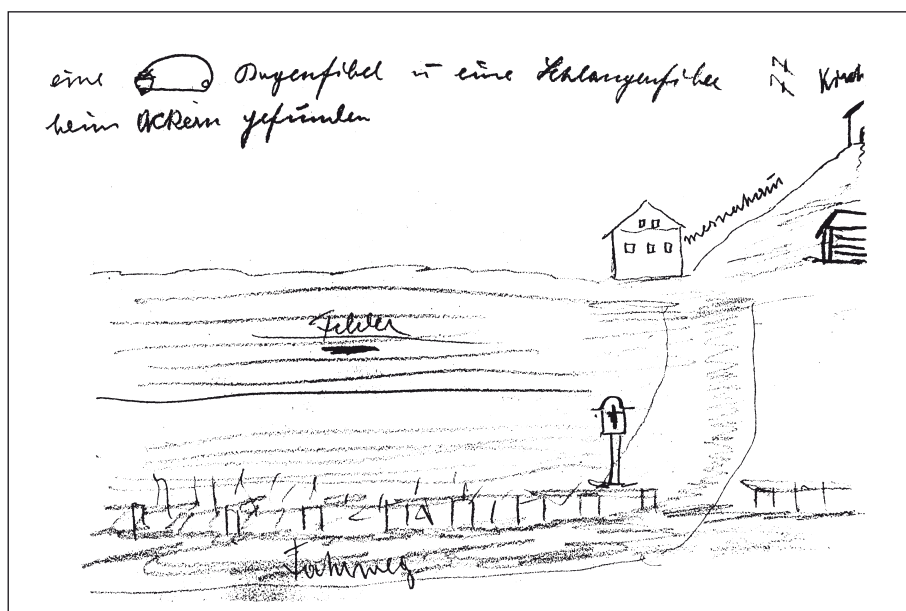 eine Bogenfibel u eine Schlangenfibel Kirch
beim Ackern gefunden
mesnerhaus
Felder
Fahrweg